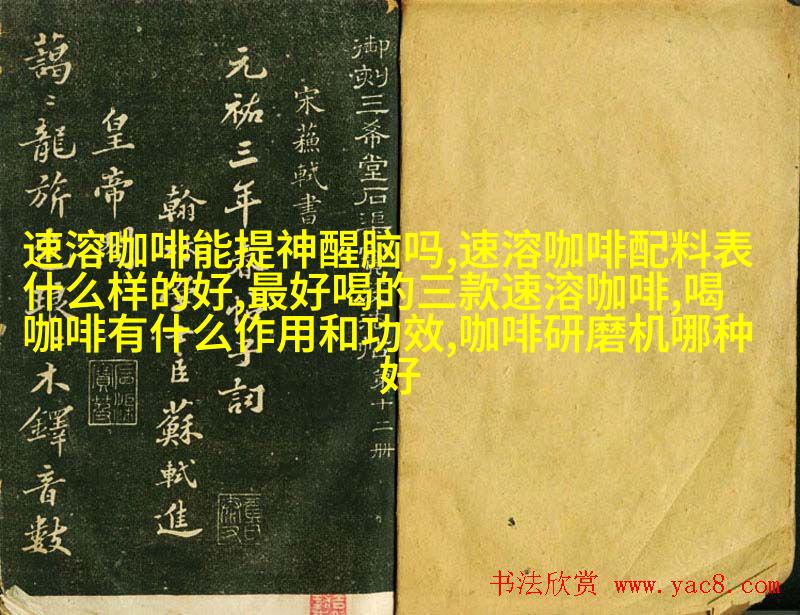 御刻三希堂石渠 第十二册
宋蘇軾書
元祐三年春帖子詞
翰林 士臣蘇軾進
皇帝閣
藹〻龍旂色 〻木鐸音數
速溶咖啡能提神醒脑吗,速溶咖啡配料表
什么样的好,最好喝的三款速溶咖啡,喝
咖啡有什么作用和功效,咖啡研磨机哪种
好
书法欣赏 www.yac8.com